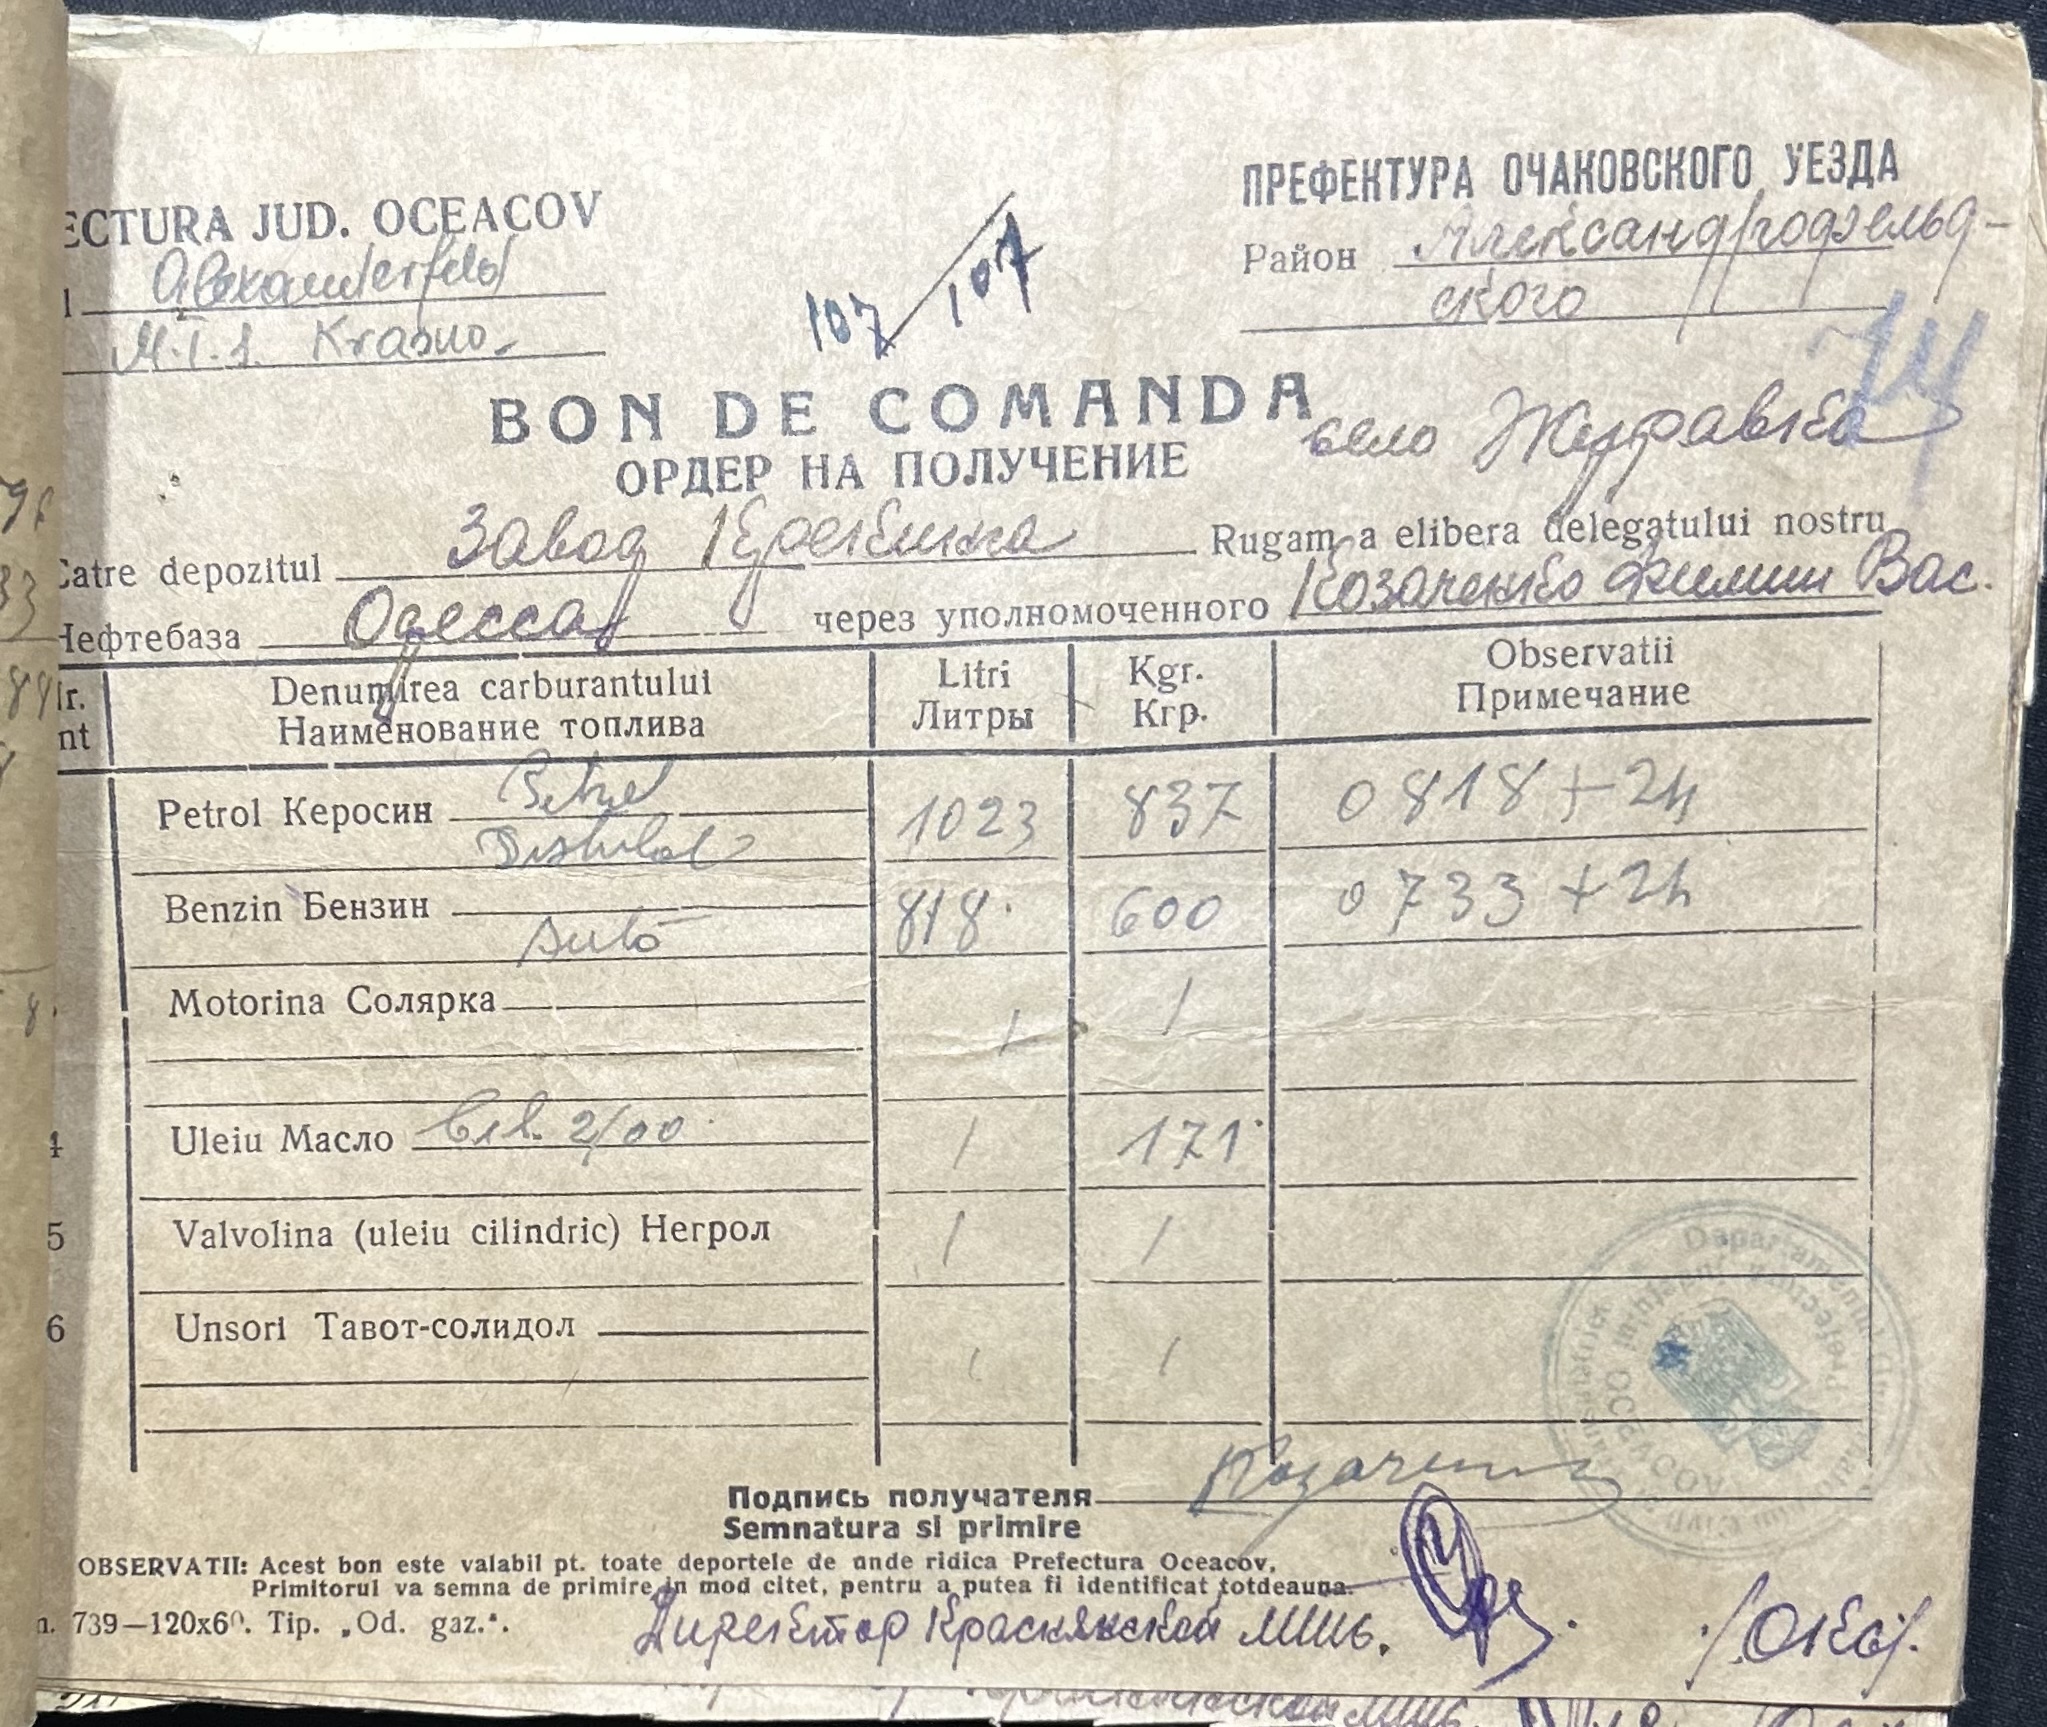 ECTURA JUD. OCEACOV
Alexanderfeld
M.T.S. Krasno.
107/107
ПРЕФЕКТУРА ОЧАКОВСКОГО УЕЗДА
Район Александрофельд-
ского
BON DE COMANDA
ОРДЕР НА ПОЛУЧЕНИЕ
село Журавка
Catre depozitul Завод Rugam a elibera delegatului nostru
Нефтебаза Одесса через уполномоченного Козаченко Филип Вас.
Nr. Denumirea carburantului Litri Kgr. Observatii
nt Наименование топлива Литры Кгр. Примечание
Petrol Керосин Petrol 1023 837 0818+24
Distilat
Benzin Бензин 818 600 0733+24
Auto
Motorina Солярка / /
4 Uleiu Масло 2/00 / 171
5 Valvolina (uleiu cilindric) Негрол / /
6 Unsori Тавот-солидол / /
Departamentul
Prefectura Judeţului
OCEACOV
Подпись получателя Козаченко
Semnatura si primire
OBSERVATII: Acest bon este valabil pt. toate deportele de unde ridica Prefectura Oceacov,
Primitorul va semna de primire in mod citet, pentru a putea fi identificat totdeauna.
739—120x60. Tip. „Od. gaz.“.
Директор Краснянской мтс.